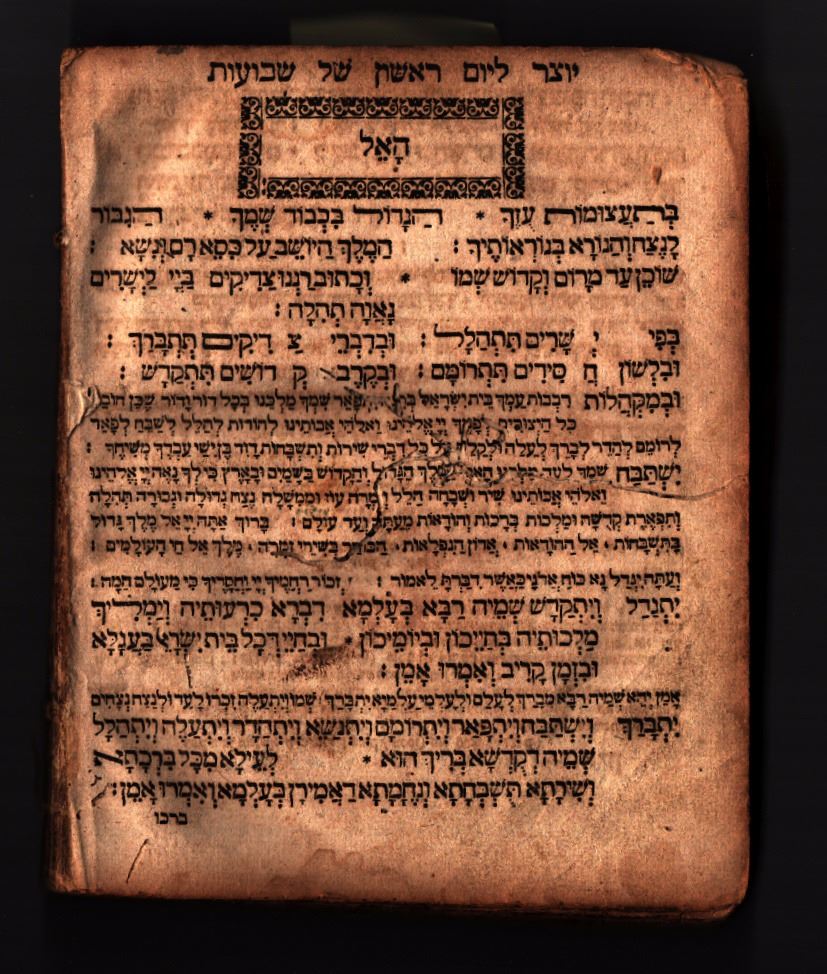 יוצר ליום ראשון של שבועות
הָאֵל
בְּתַעֲצוּמוֹת עֻזֶּךָ * הַגָּדוֹל בִּכְבוֹד שְׁמֶךָ * הַגִּבּוֹר
לָנֶצַח וְהַנּוֹרָא בְּנוֹרְאוֹתֶיךָ : הַמֶּלֶךְ הַיּוֹשֵׁב עַל כִּסֵּא רָם וְנִשָּׂא :
שׁוֹכֵן עַד מָרוֹם וְקָדוֹשׁ שְׁמוֹ * וְכָתוּב רַנְּנוּ צַדִּיקִים בַּיְיָ לַיְשָׁרִים
נָאוָה תְהִלָּה :
בְּפִי יְ שָׁרִים תִּתְהַלָּל : וּבְדִבְרֵי צַ דִּיקִים תִּתְבָּרֵךְ :
וּבִלְשׁוֹן חֲ סִידִים תִּתְרוֹמָם : וּבְקֶרֶב קְ דוֹשִׁים תִּתְקַדָּשׁ :
וּבְמַקְהֲלוֹת רִבְבוֹת עַמְּךָ בֵּית יִשְׂרָאֵל שִׁמְךָ מַלְכֵּנוּ בְּכָל דּוֹר וָדוֹר שֶׁכֵּן חוֹבַת
כָּל הַיְצוּרִים לְפָנֶיךָ יְיָ אֱלֹהֵינוּ וֵאלֹהֵי אֲבוֹתֵינוּ לְהוֹדוֹת לְהַלֵּל לְשַׁבֵּחַ לְפָאֵר
לְרוֹמֵם לְהַדֵּר לְבָרֵךְ לְעַלֵּה וּלְקַלֵּס עַל כָּל דִּבְרֵי שִׁירוֹת וְתִשְׁבְּחוֹת דָּוִד בֶּן יִשַׁי עַבְדְּךָ מְשִׁיחֶךָ :
יִשְׁתַּבַּח שִׁמְךָ לָעַד מַלְכֵּנוּ הָאֵל הַמֶּלֶךְ הַגָּדוֹל וְהַקָּדוֹשׁ בַּשָּׁמַיִם וּבָאָרֶץ כִּי לְךָ נָאֶה יְיָ אֱלֹהֵינוּ
וֵאלֹהֵי אֲבוֹתֵינוּ שִׁיר וּשְׁבָחָה הַלֵּל וְזִמְרָה עֹז וּמֶמְשָׁלָה נֶצַח גְּדוּלָּה וּגְבוּרָה תְּהִלָּה
וְתִפְאֶרֶת קְדֻשָּׁה וּמַלְכוּת בְּרָכוֹת וְהוֹדָאוֹת מֵעַתָּה וְעַד עוֹלָם : בָּרוּךְ אַתָּה יְיָ אֵל מֶלֶךְ גָּדוֹל
בַּתִּשְׁבָּחוֹת , אֵל הַהוֹדָאוֹת , אֲדוֹן הַנִּפְלָאוֹת , הַבּוֹחֵר בְּשִׁירֵי זִמְרָה , מֶלֶךְ אֵל חֵי הָעוֹלָמִים :
וְעַתָּה יִגְדַּל נָא כֹּחַ אֲדֹנָי כַּאֲשֶׁר דִּבַּרְתָּ לֵאמֹר : זְכוֹר רַחֲמֶיךָ יְיָ וַחֲסָדֶיךָ כִּי מֵעוֹלָם הֵמָּה :
יִתְגַּדַּל וְיִתְקַדַּשׁ שְׁמֵיהּ רַבָּא בְּעָלְמָא דִּבְרָא כִרְעוּתֵיהּ וְיַמְלִיךְ
מַלְכוּתֵיהּ בְּחַיֵּיכוֹן וּבְיוֹמֵיכוֹן * וּבְחַיֵּי דְכָל בֵּית יִשְׂרָאֵל בַּעֲגָלָא
וּבִזְמַן קָרִיב וְאִמְרוּ אָמֵן :
אָמֵן יְהֵא שְׁמֵיהּ רַבָּא מְבָרַךְ לְעָלַם וּלְעָלְמֵי עָלְמַיָּא יִתְבָּרֵךְ שְׁמוֹ וְיִתְעַלֶּה זִכְרוֹ לָעַד וּלְנֵצַח נְצָחִים
יִתְבָּרַךְ וְיִשְׁתַּבַּח וְיִתְפָּאַר וְיִתְרוֹמַם וְיִתְנַשֵּׂא וְיִתְהַדָּר וְיִתְעַלֶּה וְיִתְהַלָּל
שְׁמֵיהּ דְקֻדְשָׁא בְּרִיךְ הוּא * לְעֵילָא מִכָּל בִּרְכָתָא
וְשִׁירָתָא תֻּשְׁבְּחָתָא וְנֶחָמָתָא דַּאֲמִירָן בְּעָלְמָא וְאִמְרוּ אָמֵן :
ברכו